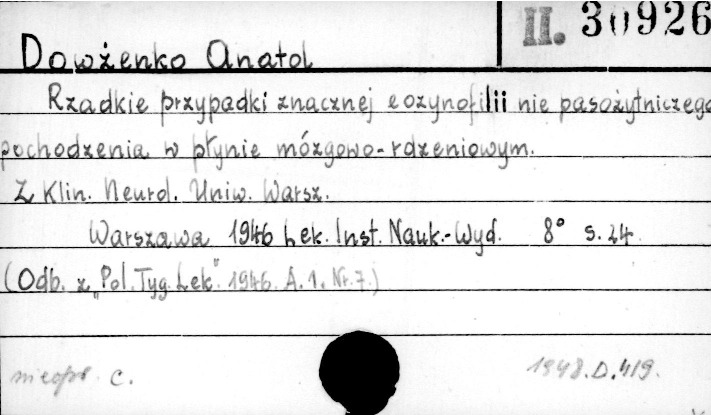 II. 30926
Dowżenko Anatol
Rzadkie przypadki znacznej eozynofilii nie pasożytniczego
pochodzenia w płynie mózgowo-rdzeniowym.
Z Klin. Neurol. Uniw. Warsz.
Warszawa 1946 Lek. Inst. Nauk.-Wyd. 8° s. 24.
(Odb. z „Pol. Tyg. Lek." 1946. A. 1. Nr. 7.)
nieopr. C. 1948.D.419.